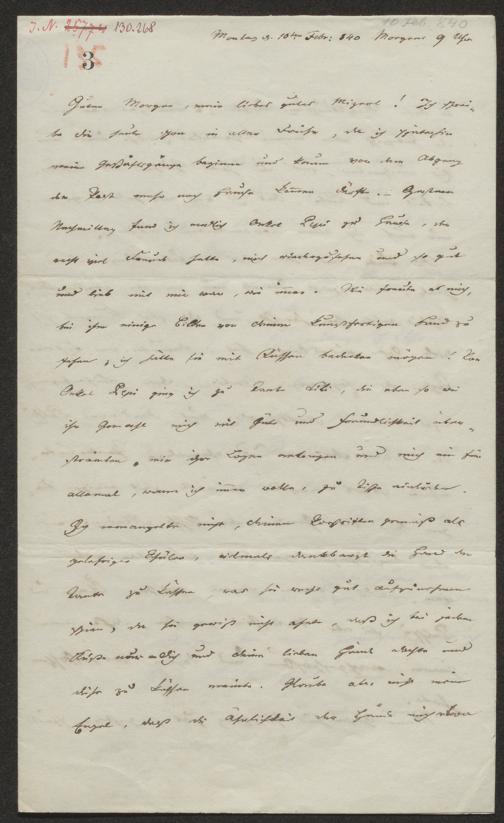 J. N. 25774 130.268
10 Feb. 840
3
Montag d. 10ten Febr: 840 Morgens 9 Uhr
Guten Morgen, mein liebes gutes Miezerl! Ich schrei-
be dir heute schon in aller Frühe, da ich
meine Geschäftsgänge beginne und kaum vor dem Abgang
der Post mehr nach Hause kommen dürfte. Gestern
Nachmittag fand ich endlich Onkel Pepi zu Hause, der
recht viel Freude hatte, mich wiederzusehen und so gut
und lieb mit mir war, wie immer. Wie freute es mich,
bei ihm einige Bilder von deiner kunstfertigen Hand zu
sehen, ich hätte sie mit Küssen bedecken mögen! Von
Onkel Pepi ging ich zu Tante, die eben so wie
ihr Gemahl mich mit Güte und Freundlichkeit über-
häuften, mir ihre Logen antrugen und mich ein für
allemal, wann ich immer wolle, zu Tische einluden.
Ich ermangelte nicht, deinen Vorschriften gemäß als
gelehriger Schüler, vielmals dankbarst die Hand der
Tante zu küssen, was sie recht gut aufzunehmen
schien, da sie gewiß nicht ahnte, daß ich bei jedem
Kusse nur an Dich und deine lieben Hände dachte und
diese zu küssen meinte. Glaube aber nicht mein
Engel, daß die Ähnlichkeit der Hände mich etwa